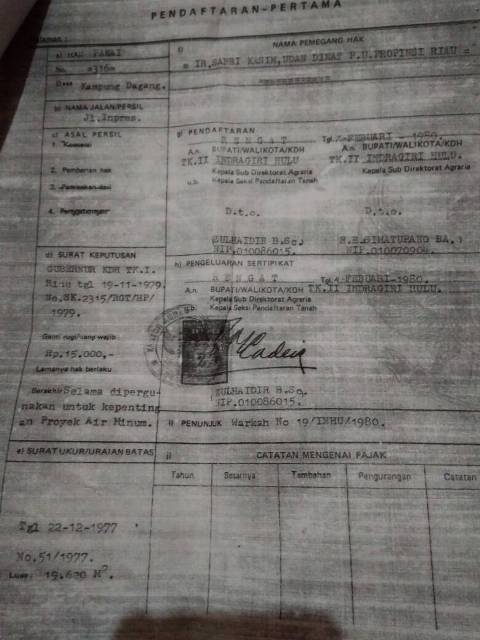 PENDAFTARAN-PERTAMA
a) HAK PAKAI
No. =316=
Desa Kampung Dagang.
b) NAMA JALAN/PERSIL
Jl.Inpres.
c) ASAL PERSIL
1. Konversi
2. Pemberian hak
3. Pemisahan dari
4. Penggabungan
d) SURAT KEPUTUSAN
GUBERNUR KDH TK.I.
Riau tgl 19-11-1979.
No.SK.2315/RGT/HP/
1979.
Ganti rugi/uang wajib
Rp.15.000,-
Lamanya hak berlaku
Berakhir Selama dipergu-
nakan untuk kepenting
an Proyek Air Minum.
e) SURAT UKUR/URAIAN BATAS
Tgl 22-12-1977
No.51/1977.
Luas: 19.620 M².
f) NAMA PEMEGANG HAK
= IR,SABRI KASIM,UDAN DINAT P.U.PROPINSI RIAU =
g) PENDAFTARAN
RENGAT
A.n. BUPATI/WALIKOTA/KDH
TK.II INDRAGIRI HULU
Kepala Sub Direktorat Agraria
u.b. Kepala Seksi Pendaftaran Tanah
D.t.o.
ZULHAIDIR B.Sc.
NIP.010086015.
FEBUARI - 1980.
A.n. BUPATI/WALIKOTA/KDH
TK.II INDRAGIRI HULU.
Kepala Sub Direktorat Agraria
D.t.o.
SIMATUPANG BA.
h) PENGELUARAN SERTIPIKAT
RENGAT
FEBUARI-1980.
A.n. BUPATI/WALIKOTA/KDH TK.II INDRAGIRI HULU.
Kepala Sub Direktorat Agraria
u.b. Kepala Seksi Pendaftaran Tanah
ZULHAIDIR B.Sc.
NIP.010086015.
i) PENUNJUK Warkah No 19/INHU/1980.
j) CATATAN MENGENAI PAJAK
Tahun Besarnya Tambahan Pengurangan Catatan